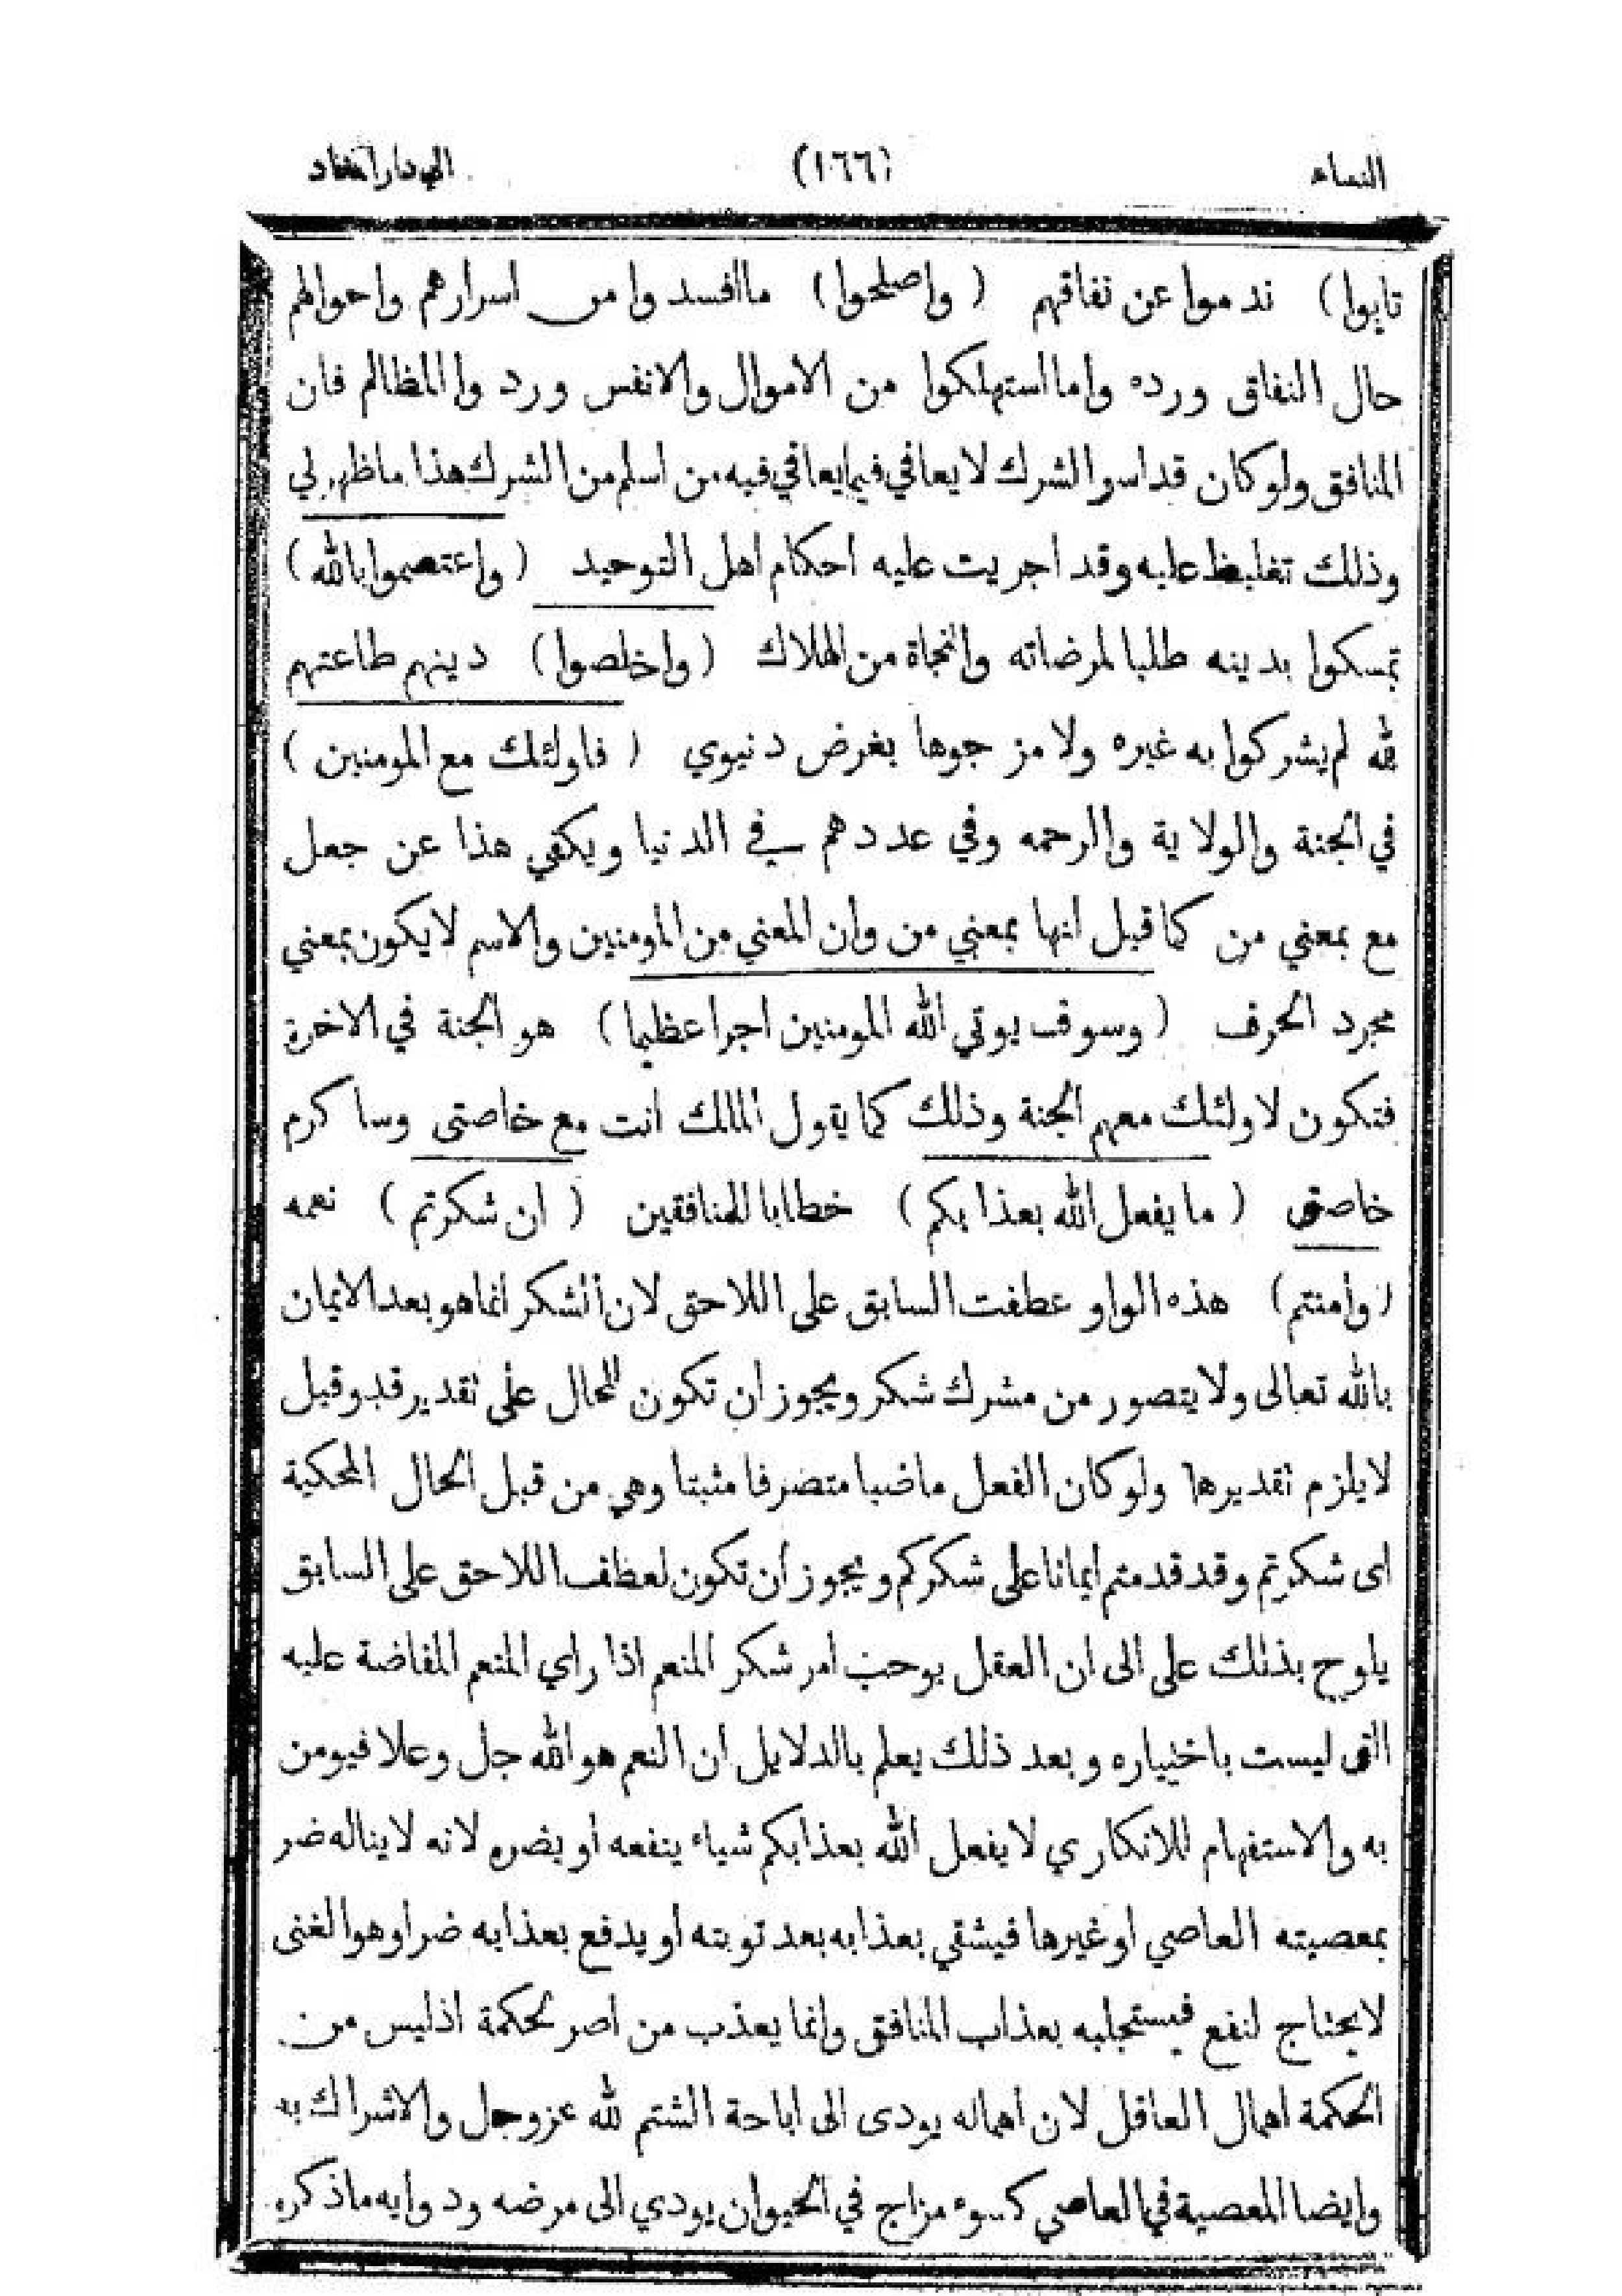 النساء (١٦٦) الى دار المعاد
تابوا) ندموا عن نفاقهم (واصلحوا) ماافسدوا من اسرارهم واحوالهم
حال النفاق ورده واما استهلكوا من الاموال والانفس وردوا المظالم فان
المنافق ولوكان قد اسر الشرك لايعافي فيما يعافي فيه من اسلم من الشرك هذا ماظهر لي
وذلك تغليظ عليه وقد اجريت عليه احكام اهل التوحيد (واعتصموا بالله)
تمسكوا بدينه طلبا لمرضاته وانجاة من الهلاك (واخلصوا) دينهم طاعتهم
لله لم يشركوا به غيره ولا مزجوها بغرض دنيوي (فاولئك مع المومنين)
في الجنة والولاية والرحمه وفي عددهم في الدنيا ويكفي هذا عن جعل
مع بمعني من كما قيل انها بمعني من وان المعني من المومنين والاسم لايكون بمعني
مجرد الحرف (وسوف يوتي الله المومنين اجرا عظيما) هو الجنة في الاخرة
فتكون لاولئك معهم الجنة وذلك كما يقول المالك انت مع خاصتى وساكرم
خاصتى (مايفعل الله بعذابكم) خطابا للمنافقين (ان شكرتم) نعمه
(وامنتم) هذه الواو عطفت السابق على اللاحق لان الشكر انما هو بعد الايمان
بالله تعالى ولايتصور من مشرك شكر ويجوز ان تكون للحال على تقدير قد وقيل
لايلزم تقديرها ولوكان الفعل ماضيا متصرفا مثبتا وهي من قبل الحال المحكية
اى شكرتم وقد قدمتم ايمانا على شكركم ويجوز ان تكون لعطف اللاحق على السابق
يلوح بذلك على الى ان العقل يوجب امر شكر المنعم اذا راي المنعم المفاضة عليه
التى ليست باختياره وبعد ذلك يعلم بالدلايل ان النعم هو الله جل وعلا فيومن
به والاستفهام للانكاري لايفعل الله بعذابكم شياء ينفعه أو يضره لانه لايناله ضر
بمعصيته العاصي اوغيرها فيشقي بعذابه بعد توبته أو يدفع بعذابه ضرا وهو الغنى
لايحتاج لنفع فيستجلبه بعذاب المنافق وانما يعذب من اصر لحكمة اذليس من
الحكمة اهمال العاقل لان اهماله يودى الى اباحة الشتم لله عزوجل والاشراك به
وايضا المعصية في العاصي كسوء مزاج في الحيوان يودي الى مرضه ودوايه ماذكره